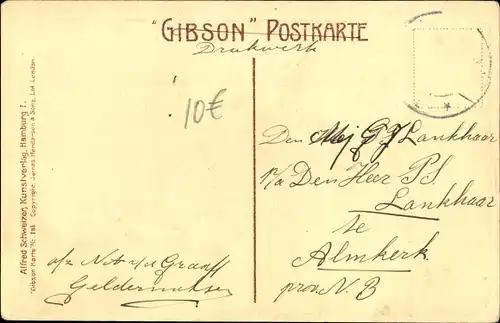 "GIBSON" POSTKARTE
Drukwerk
10€
Alfred Schweizer, Kunstverlag, Hamburg 1.
"Gibson Karte" No. Copyright, James Henderson & Sons, Ltd. London.
Den Mej G J Lankhaar
p/a Den Heer P.S.
Lankhaar
te
Almkerk
prov. N. B
a/z
Geldermalsen